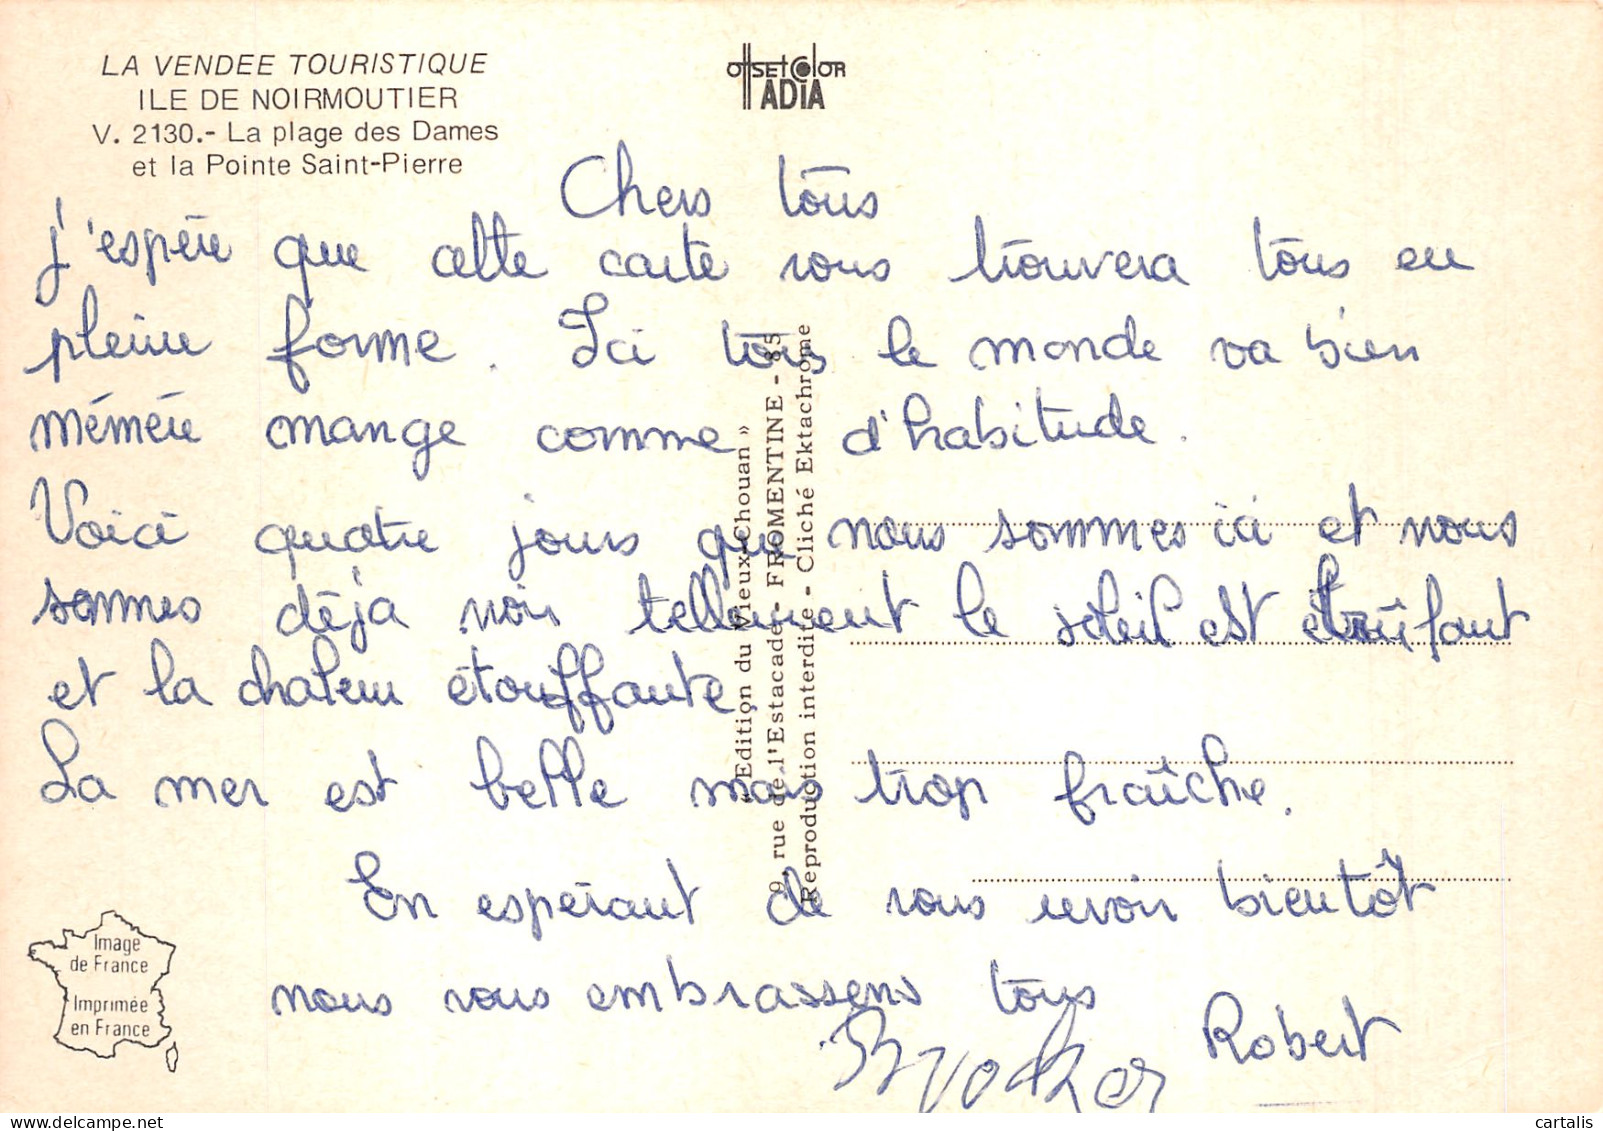 LA VENDEE TOURISTIQUE
ILE DE NOIRMOUTIER
V. 2130.- La plage des Dames
et la Pointe Saint-Pierre
OffsetColor
ADIA
Chers tous
j'espère que cette carte vous trouvera tous en
pleine forme. Ici tous le monde va bien
mémère mange comme d'habitude.
Voici quatre jours que nous sommes ici et nous
sommes déja noir tellement le soleil est
et la chaleur étouffante.
La mer est belle mais trop fraîche.
En espérant de vous revoir bientôt
nous vous embrassens tous
Robert
« Edition du Vieux-Chouan »
9, rue de l'Estacade - FROMENTINE - 85
Reproduction interdite - Cliché Ektachrome
Image
de France
Imprimée
en France
cartalis